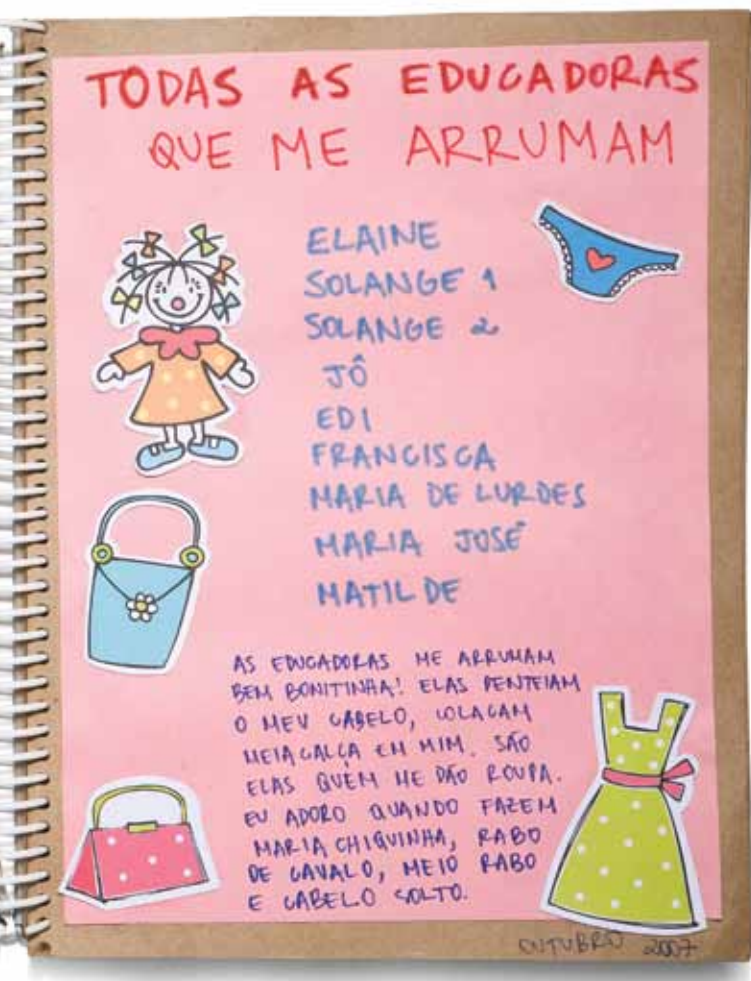 TODAS AS EDUCADORAS
QUE ME ARRUMAM
ELAINE
SOLANGE 1
SOLANGE 2
JÔ
EDI
FRANCISCA
MARIA DE LURDES
MARIA JOSÉ
MATILDE
AS EDUCADORAS ME ARRUMAM
BEM BONITINHA! ELAS PENTEIAM
O MEU CABELO, COLACAM
MEIA CALÇA EM MIM. SÃO
ELAS QUEM ME DÃO ROUPA.
EU ADORO QUANDO FAZEM
MARIA CHIQUINHA, RABO
DE CAVALO, MEIO RABO
E CABELO SOLTO.
OUTUBRO 2007